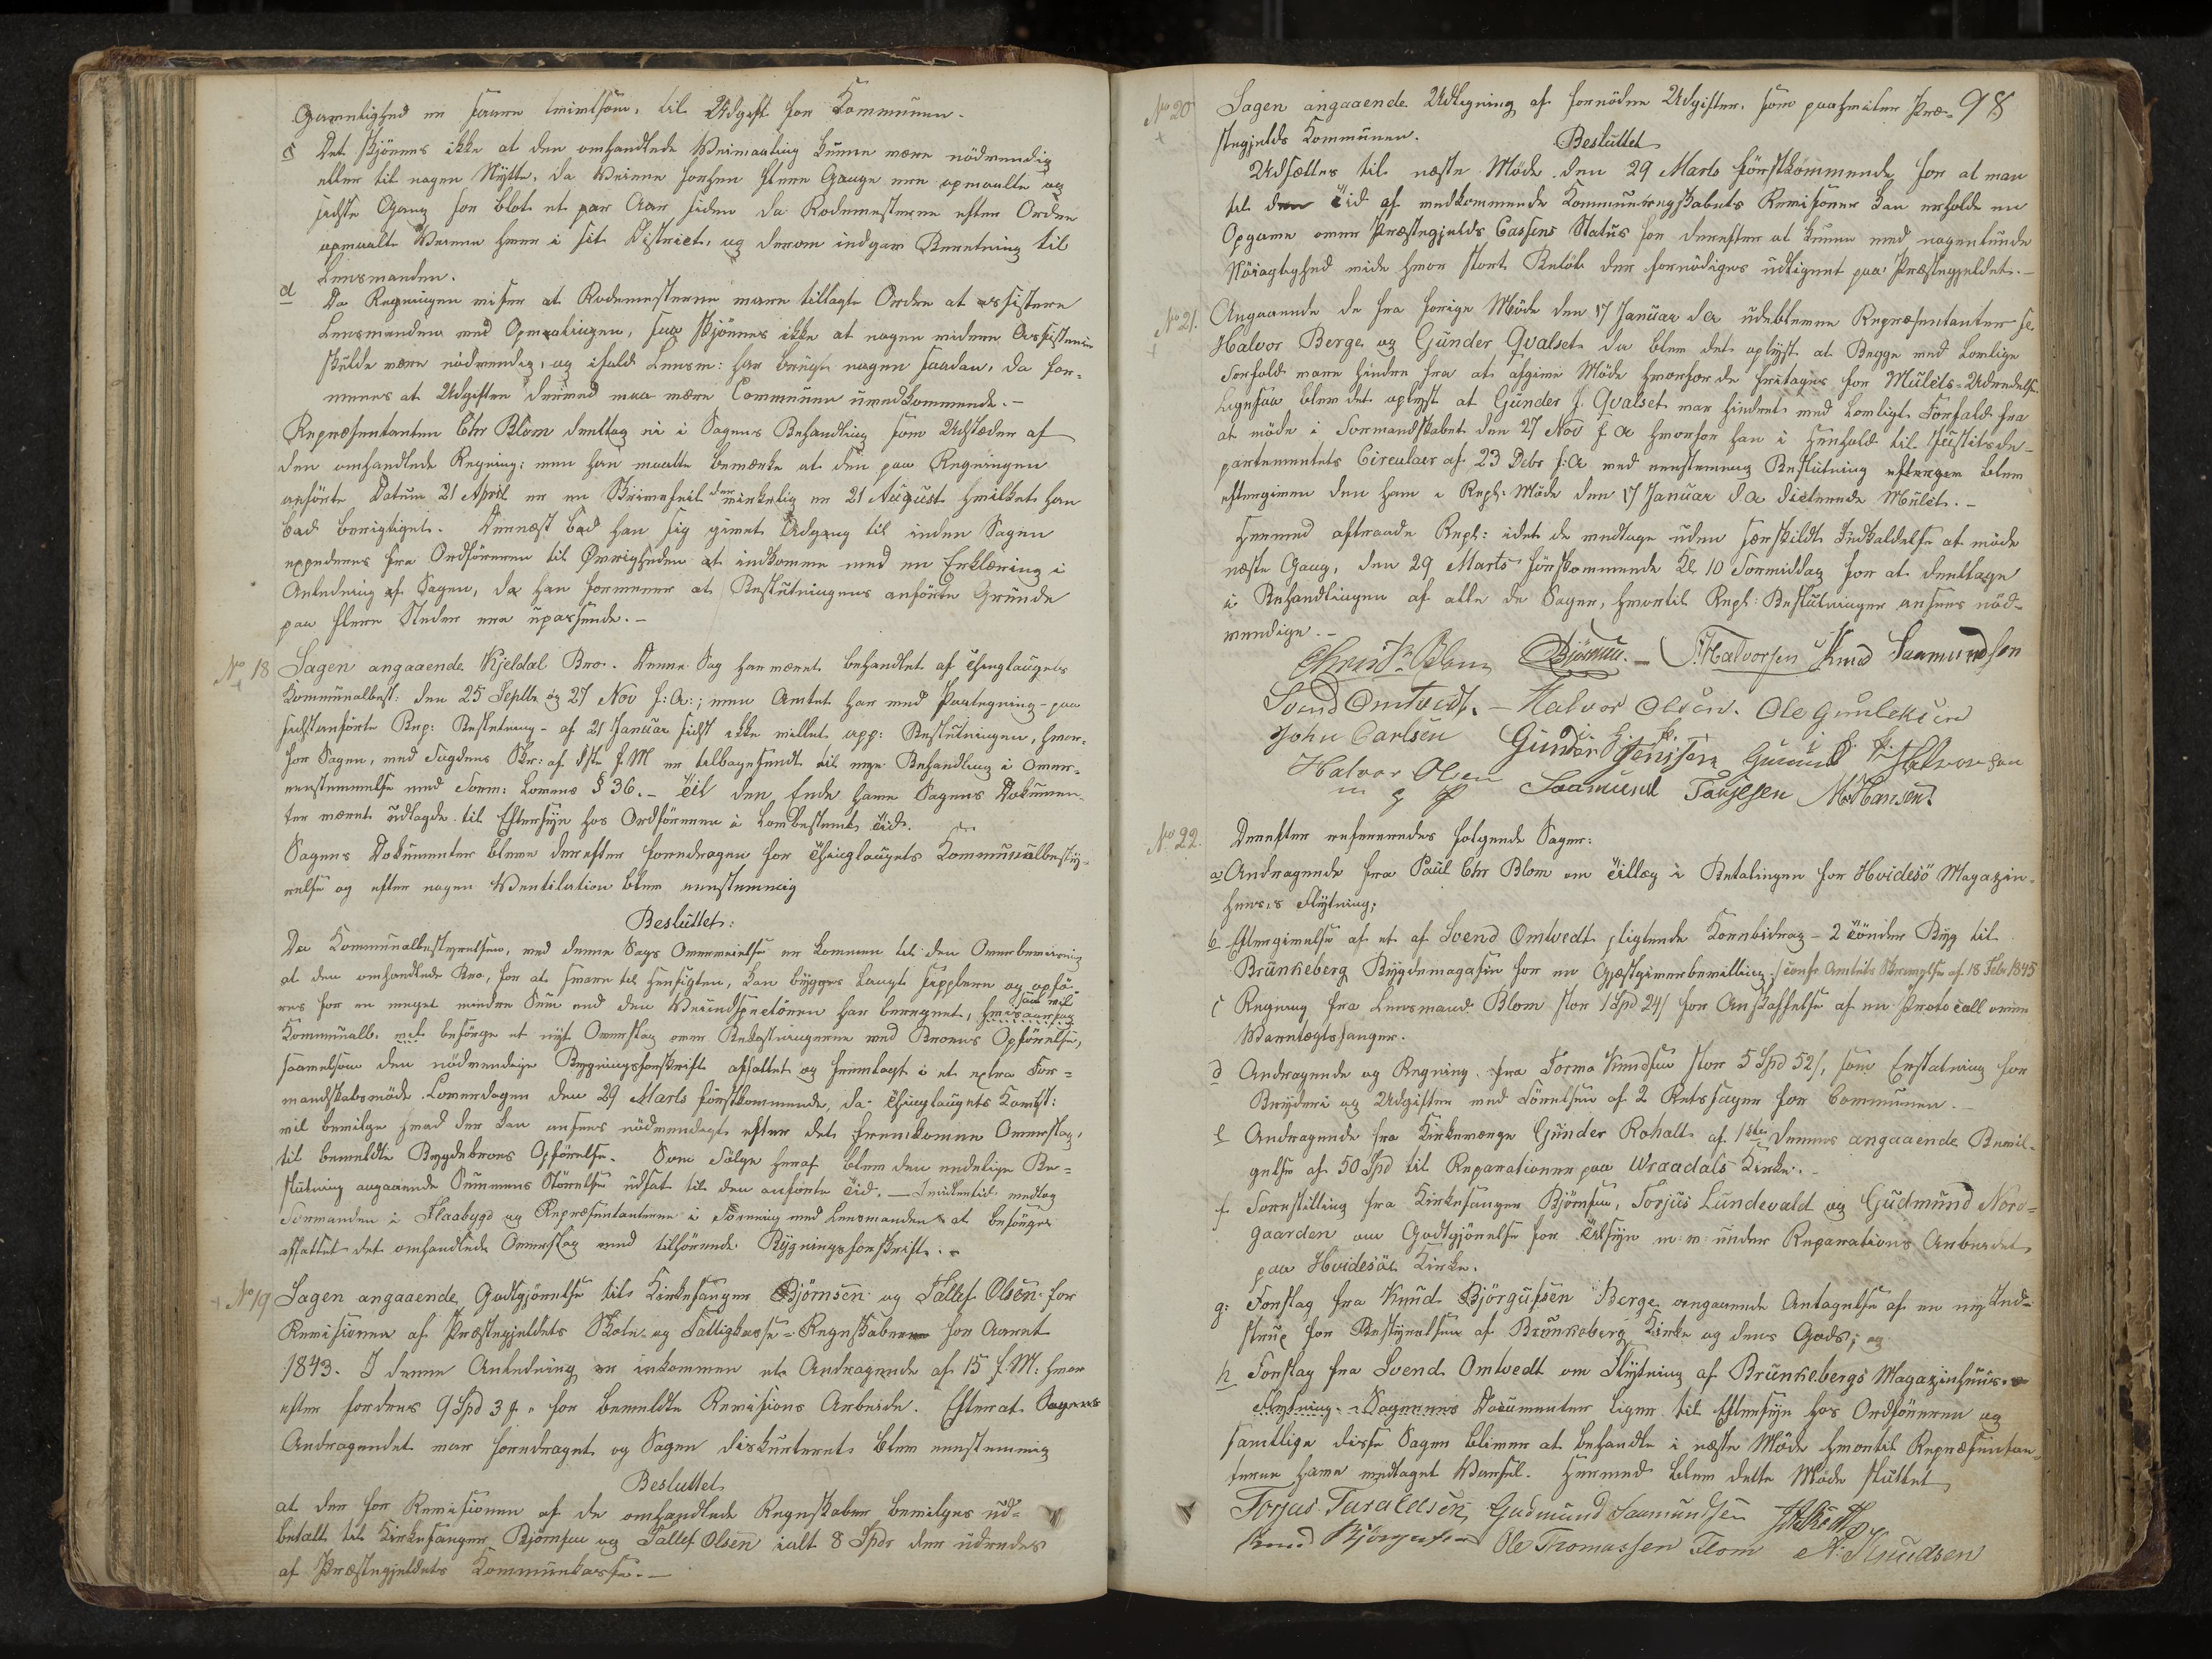 Gavnlighed en saare tvivlsom, til Udgift for Kommunen.
c Det skjönnes ikke at den omhandlede Veimaaling kunne være nödvendig
eller til nogen Nÿtte, da Veiene forhen flere Gange ere opmaalte og
sidste Gang for blot et par Aar siden da Rodemesterne efter Ordre
opmaalte Veiene hver i sit District, og derom indgav Beretning til
Lensmanden.
d Da Regningen viser at Rodemesterne vare tillagte Ordre at assistere
Lensmanden med Opmaalingen, saa skjönnes ikke at nogen videre Assistence
skulde være nödvendig, og ifald Lensm: har brugt nogen saadan, da for-
menes at Udgiften derved maa være Communen uvedkommende.-
Repræsentanten Chr Blom deeltog ei i Sagens Behandling som Udsteder af
den omhandlede Regning; men han maatte bemærke at den paa Regningen
anförte Datum 21 April er en Skrivefeil der virkelig er 21 August hvilket han
bad berigtiget. Dernæst bad han sig givet Adgang til inden Sagen
expederes fra Ordföreren til Øvrigheden at indkomme med en Erklæring i
Anledning af Sagen, da han formener at Beslutningens anförte Grunde
paa flere Steder ere upassende.-
No 18 Sagen angaaende Kjeldal Bro. Denne Sag har været behandlet af Thinglaugets
Kommunalbest: den 25 Septb og 27 Nov f:A:; men Amtet har med Paategning paa
sidstanförte Rep: Beslutning af 21 Januar sidst ikke villet app: Beslutningen, hvor-
for Sagen, med Fogdens Skr: af 8de f.M er tilbagesendt til nye Behandling i Over-
eensstemmelse med Form: Lovens § 36.- Til den Ende have Sagens Dokumen-
ter været udlagde til Eftersÿn hos Ordföreren i lovbestemt Tid.
Sagens Dokumenter bleve derefter foredragen for Thinglaugets Kommunalbestÿ-
relse og efter nogen Ventilation blev eenstemmig
Besluttet:
Da Kommunalbestyrelsen, ved denne Sags Overveielse er kommen til den Overbeviisning
at den omhandlede Bro, for at svare til Hensigten, kan bÿgges langt simplere og opfö-
res for en meget mindre Sum end den Veiindspecteuren har beregnet, hvisaarsag
saa vil
Kommunalb. vil besörge et nÿt Overslag over Bekostningerne ved Broens Opförelse,
saavelsom den nödvendige Bygningsforskrift affattet og fremlagt i et extra For-
mandskabsmöde Loverdagen den 29 Marts förstkommende, da Thinglaugets Kombst:
vil bevilge hvad der kan ansees nödvendigt efter det fremkomne Overslag,
til bemeldte Bygdebroes Opförelse. Som Fölge heraf blev den endelige Be-
slutning angaaende Summens Störrelse udsat til den anförte Tid. — Imidlertid modtog
Formanden i Flaabygd og Repræsentanterne i Forening med Lensmanden at besörge
affattet det omhandlede Overslag med tilhörende Bÿgningsforskrift.
No 19 Sagen angaaende Godtgjörelse til Kirkesanger Björnsen og Tallef Olsen for
Revisionen af Præstegjeldets Skole- og Fattigkasse-Regnskaber for Aaret
1843. I denne Anledning er inkommen et Andragende af 15 f.M: hvor
efter fordres 9 Spd 3 f " for bemeldte Revisions Arbeide. Efterat Sagens
Andragendet var foredraget og Sagen diskuteret blev eenstemmig
Besluttet
at der for Revisionen af de omhandlede Regnskaber bevilges ud-
betalt til Kirkesanger Björnsen og Tallef Olsen ialt 8 Spdr der udredes
af Præstegjeldets Kommunkasse.-
98
No 20 Sagen angaaende Udligning af fornödne Udgifter, som paahviler Præ-
stegjelds Kommunen.
Besluttet
Udsættes til næste Möde den 29 Marts förstkommende for at man
til den Tid af vedkommende Kommuneregnskabets Revisorer kan erholde en
Opgave over Præstegjelds Cassens Status for derefter at kunne med nogenlunde
Nöiagtighed vide hvor stort Belöb der fornödiges udlignet paa Præstegjeldet.-
No 21. Angaaende de fra forige Möde den 17 Januar d A udeblevne Repræsentanter
Halvor Berge og Gunder Qvalset da blev det oplÿst at Begge ved lovlige
Forfald vare hindre fra at afgive Möde hvorfor de fritages for Mulcts-Udredelse.
Ligesaa blev det oplÿst at Gunder J. Qvalset var hindret ved lovligt Forfald fra
at möde i Formandskabet den 27 Nov f A hvorfor han i Henhold til Justitsde-
partementets Circulaer af 23 Decbr f:A ved eenstemmig Beslutning eftergiv blev
eftergiven den ham i Reps: Möde den 17 Januar d A dicterede Mulct.-
Hermed aftraade Reps: idet de vedtoge uden særskildt Indkaldelse at möde
næste Gang, den 29 Marts förstkommende Kl 10 Formiddag for at deeltage
i Behandlingen af alle de Sager, hvortil Reps: Beslutninger ansees nöd-
vendige.-
Christn Blom Björnsen.- T. Halvorsen Knud Saamundsen
Svend Omtvedt.- Halvor Olsen. Ole Gunleksen
John Carlsen Gunder Jenssen Gunund Halvorsen
i. g. f. i. p.
Halvor Olsen Saamund Tarjesen M Hansen
m g f
No 22. Derefter refereredes fölgende Sager:
a Andragende fra Paul Chr Blom om Tillæg i Betalingen for Hvidesö Magazin-
huses Flÿtning;
b Eftergivelse af et af Svend Omtvedt pligtende Kornbidrag - 2 Tönder Bÿg til
Brunkeberg Bÿgdemagasin for en Gjæstgiverbevilling; / confr. Amtets Skrivelse af 18 Febr 1845
c Regning fra Lensmand Blom stor 1 Spd 24 s for Anskaffelse af en Protocall over
Varetægtsfanger.
d Andragende og Regning fra Tormo Knudsen stor 5 Spd 52 s, som Erstatning for
Brÿderi og Udgifter ved Förelsen af 2 Retssager for Communen.-
e Andragende fra Kirkeværge Gunder Rohalt af 1ste dennes angaaende Bevil-
gelse af 50 Spd til Reparationer paa Vraadals Kirke.-
f. Forestilling fra Kirkesanger Björnsen, Torjus Lundevald og Gudmund Nord-
gaarden om Godtgjörelse for Tilsÿn m: m: under Reparations Arbeidet
paa Hvidesöe Kirke.
g: Forslag fra Knud Björgufsen Berge angaaende Antagelse af en nÿ Ind-
strux for Bestÿrelsen af Brunkeberg Kirke og dens Gods; og
h Forslag fra Svend Omtvedt om Flÿtning af Brunkebergs Magazinhuus.
Flytning. - Sagernes Documenter ligge til Eftersÿn hos Ordföreren og
samtlige disse Sager bliver at behandle i næste Möde hvortil Repræsentan-
terne have modtaget Varsel. Hermed blev dette Möde sluttet
Torjus Taraldsen, Gudmund Saamundsen
Knud Björgufsen Ole Thomassen Flom A. Knudsen